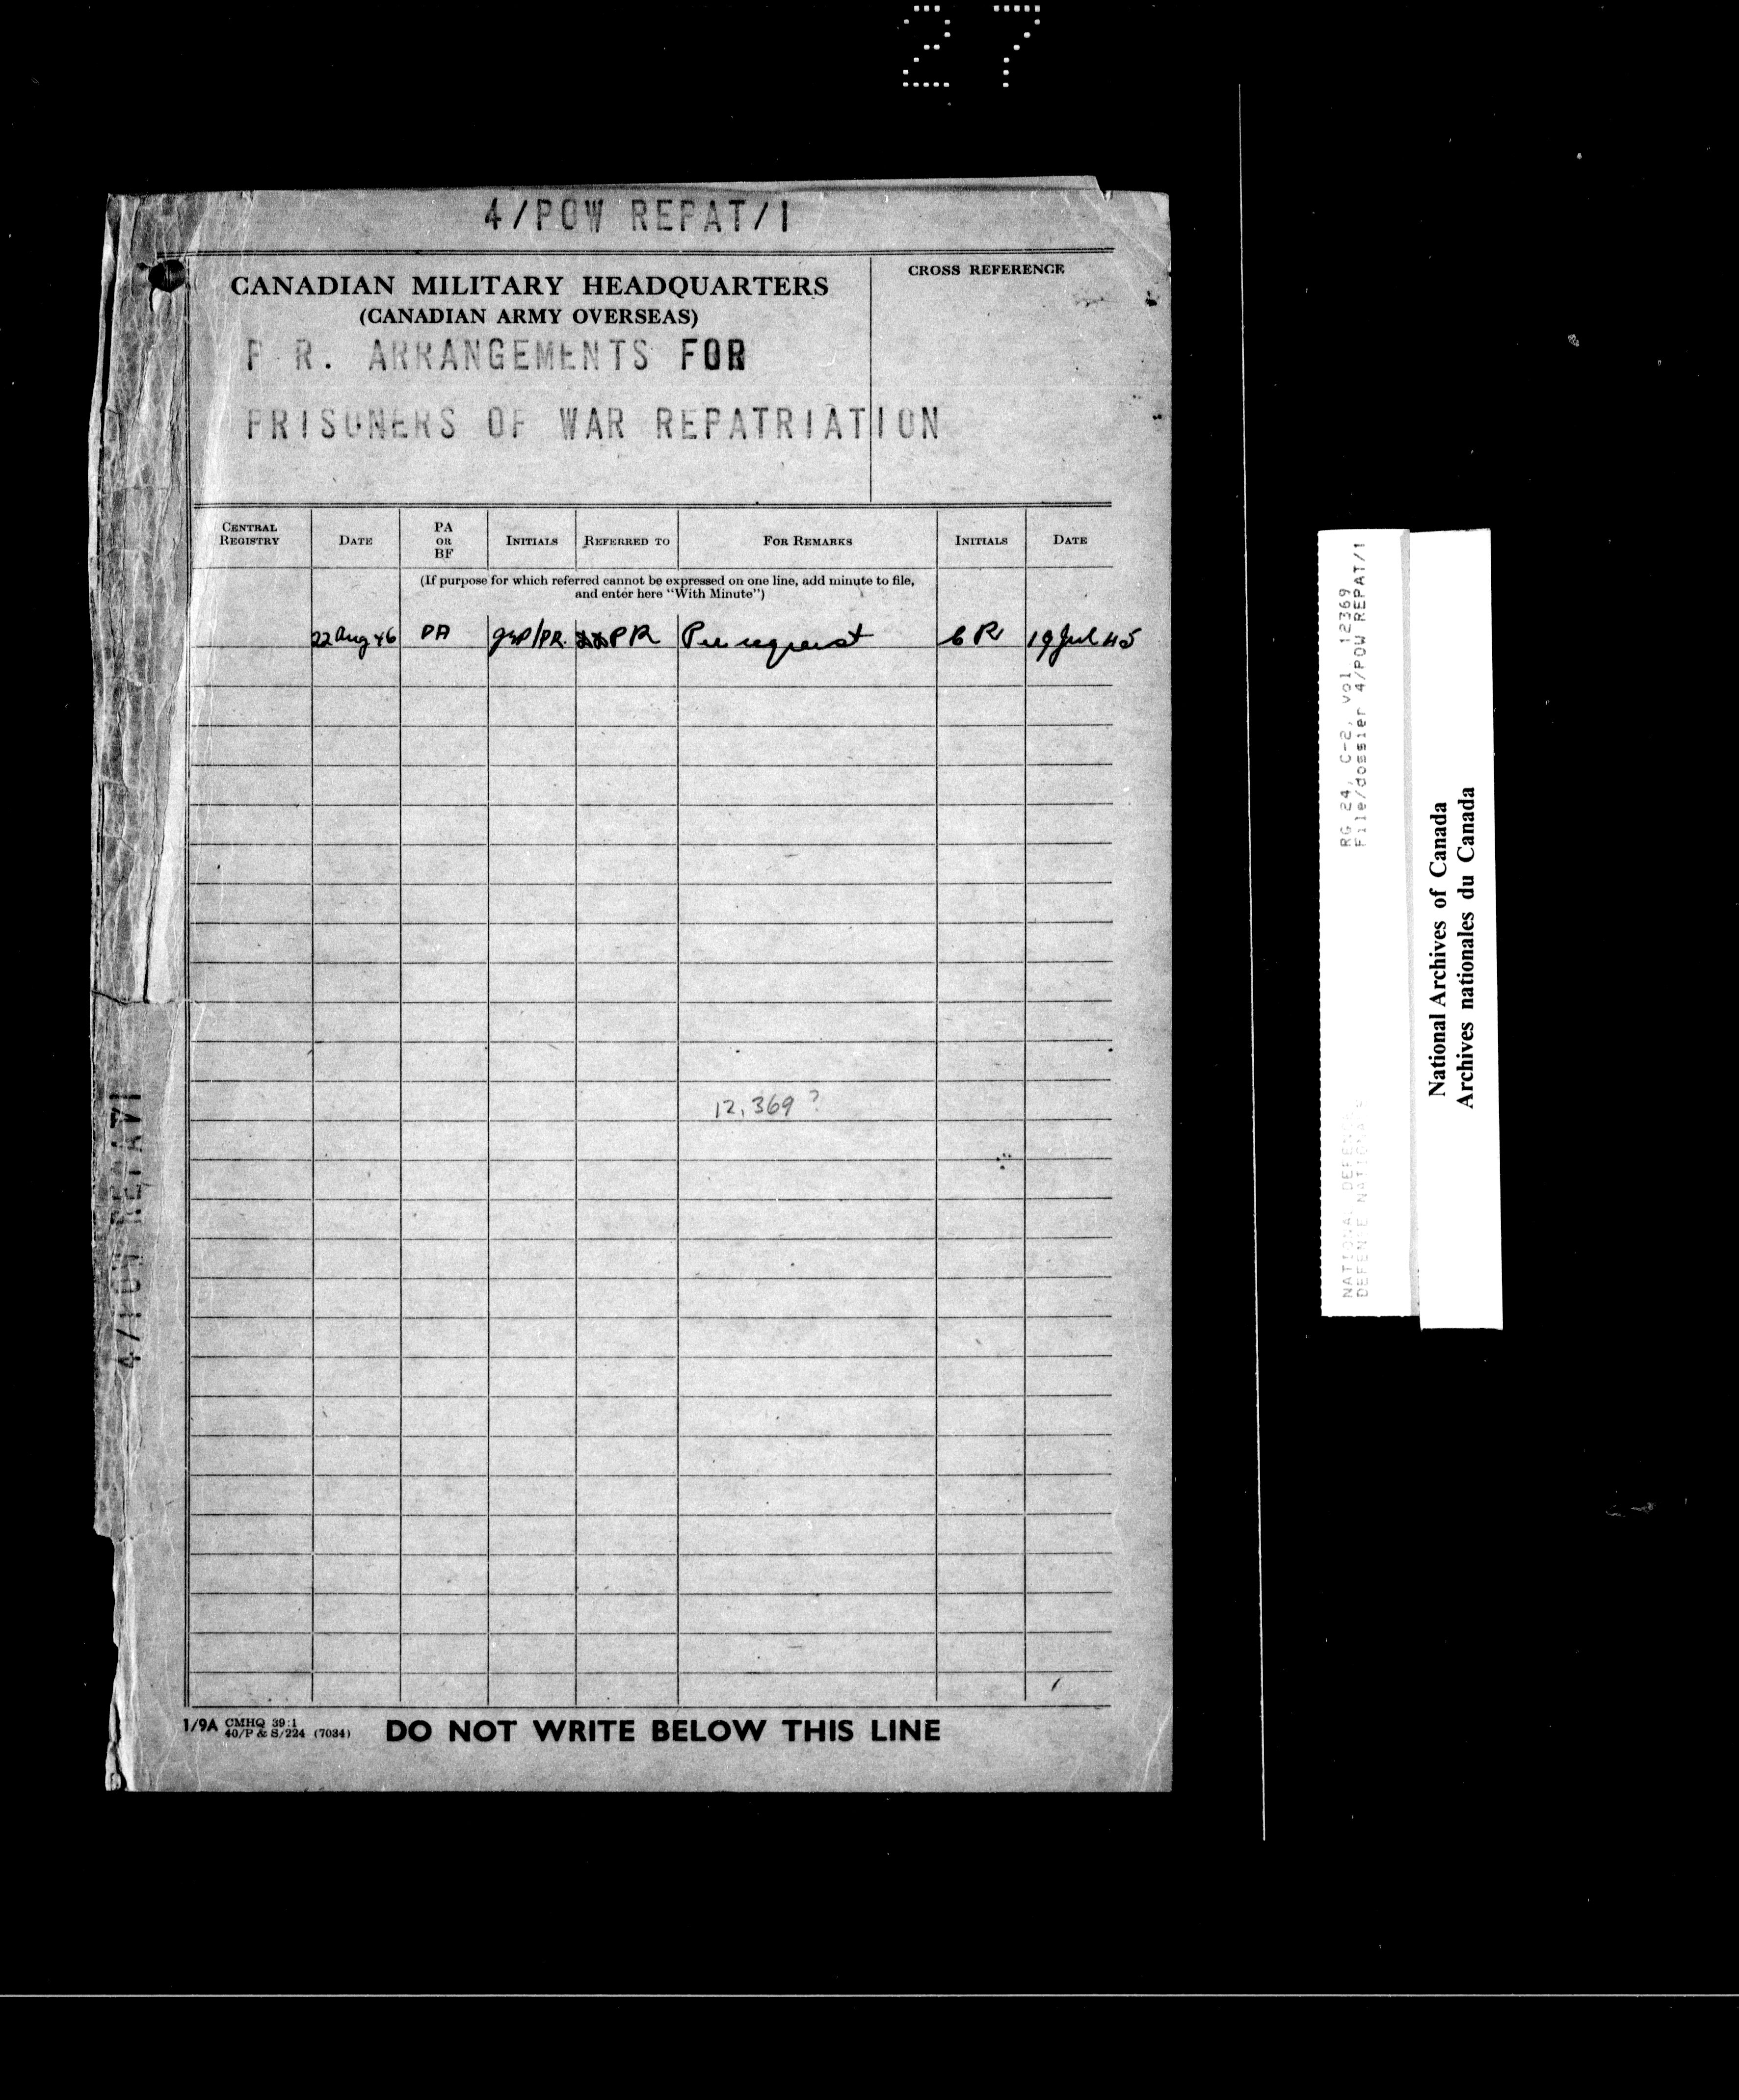 27
4/POW REPAT/1
CANADIAN MILITARY HEADQUARTERS
(CANADIAN ARMY OVERSEAS)
CROSS REFERENCE
P R. ARRANGEMENTS FOR
PRISONERS OF WAR REPATRIATION
CENTRAL REGISTRY DATE PA OR BF INITIALS REFERRED TO FOR REMARKS INITIALS DATE
(If purpose for which referred cannot be expressed on one line, add minute to file,
and enter here "With Minute")
22 Aug 46 PA /PR. PR Per request CR 19 Jul 45
12,369 ?
4/POW REPAT/1
1/9A CMHQ 39:1
40/P & S/224 (7034)
DO NOT WRITE BELOW THIS LINE
RG 24, C-2, vol. 12369
File/dossier 4/POW REPAT/1
NATIONAL DEFENCE
DEFENSE NATIONALE
National Archives of Canada
Archives nationales du Canada